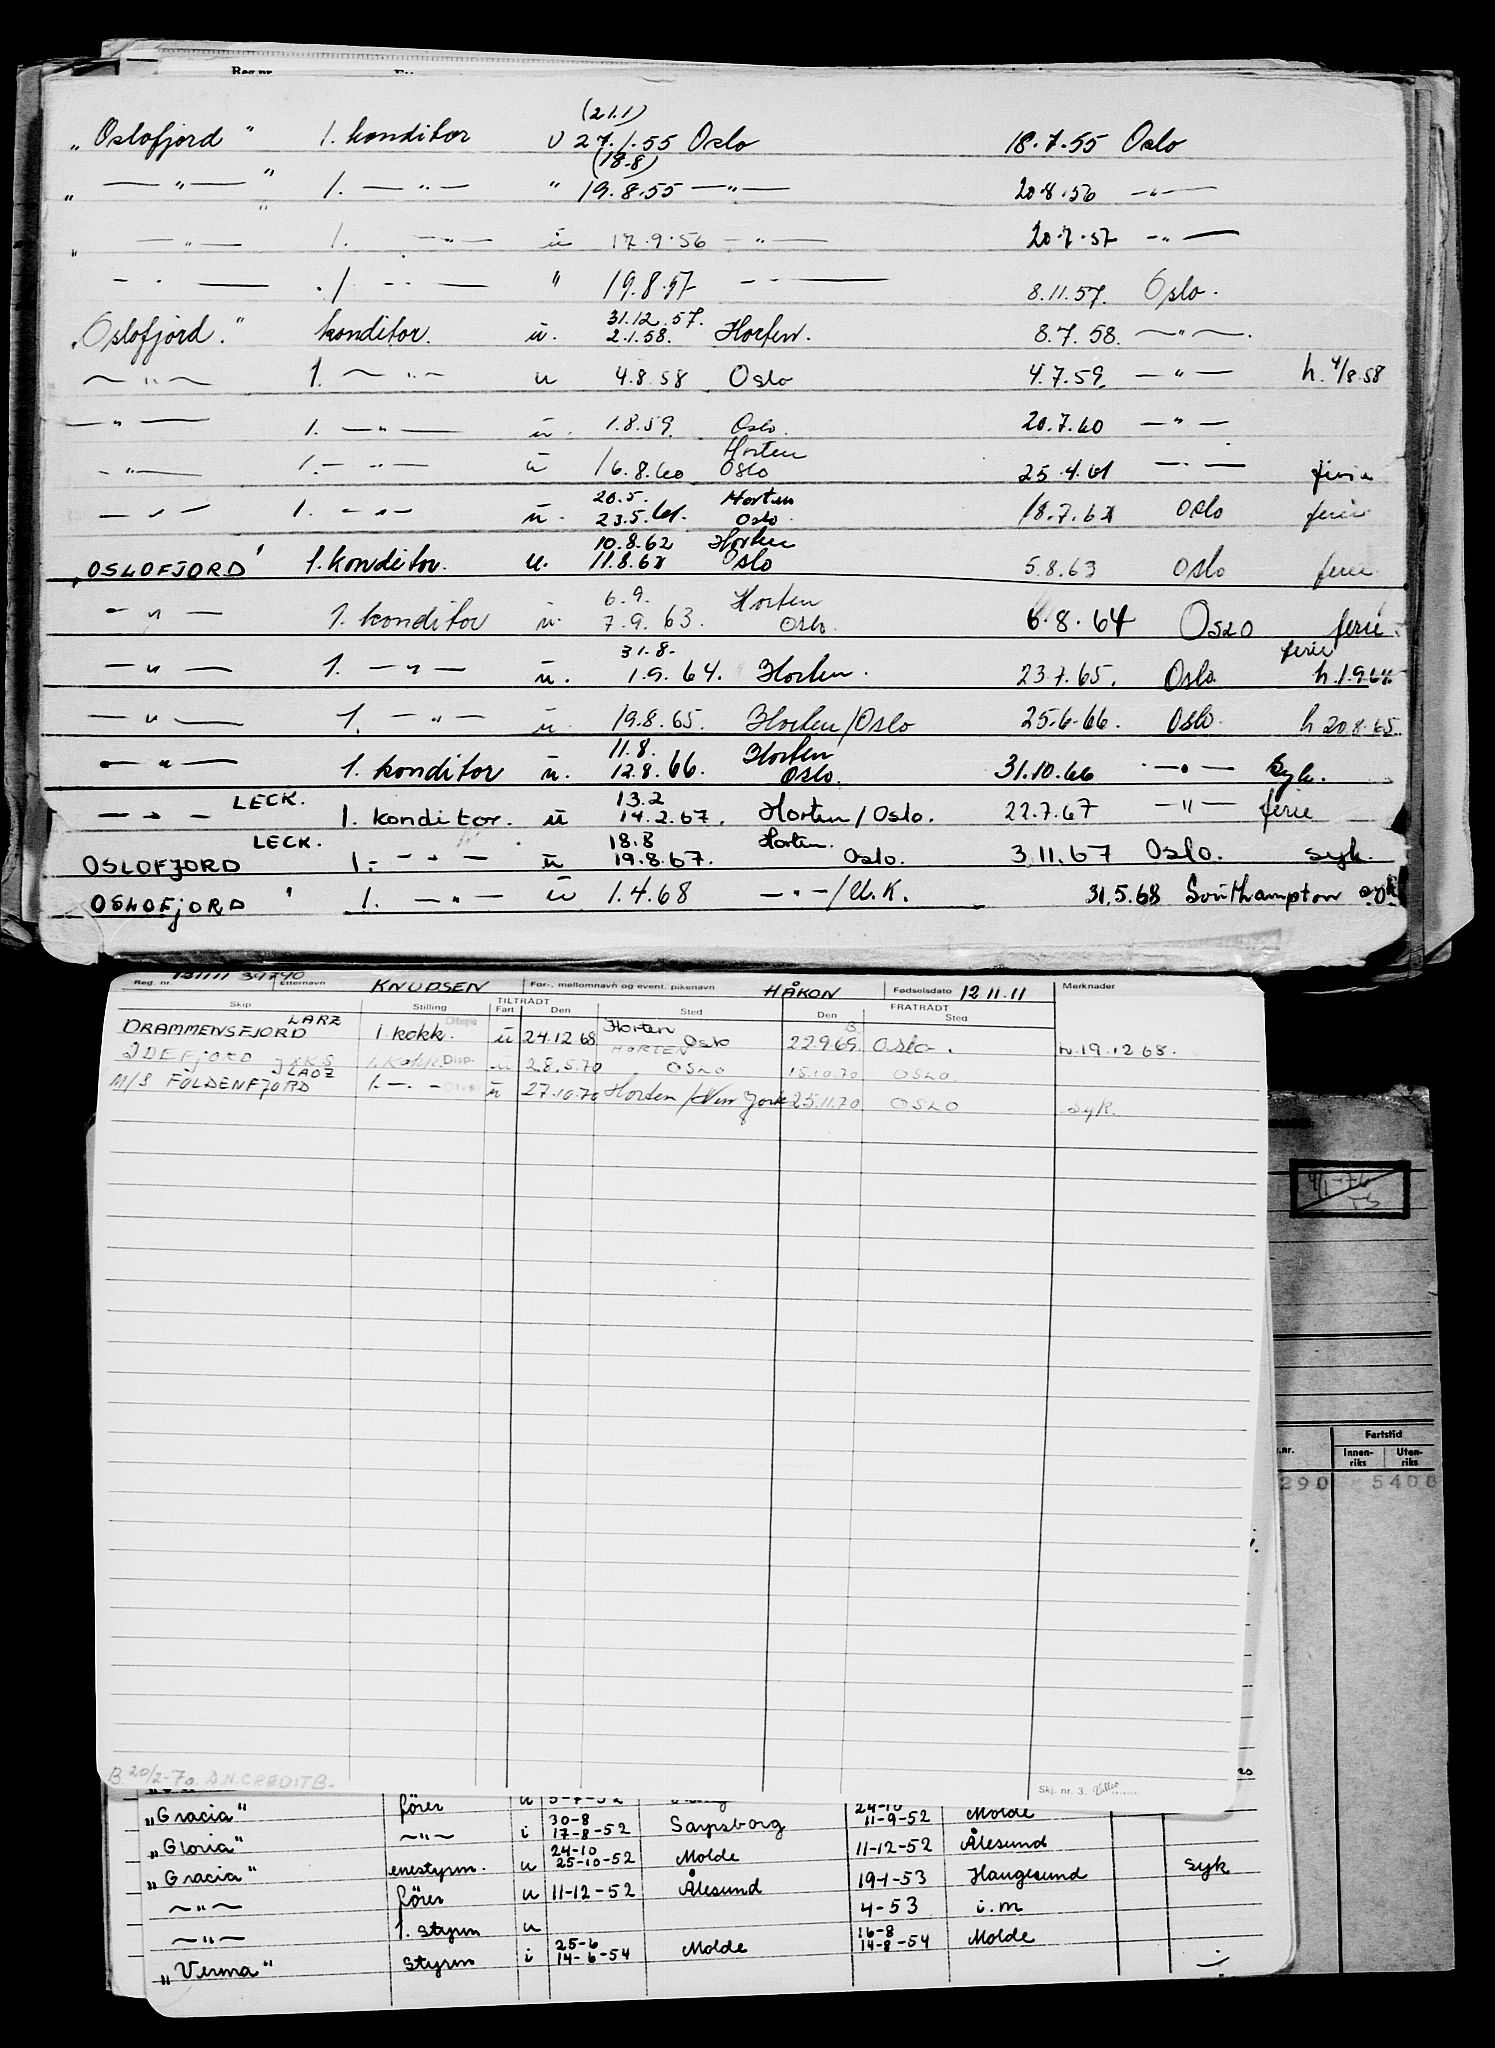 (21.1)
„Oslofjord" 1. konditor u 27.1.55 Oslo 18.7.55 Oslo
(18.8)
„ — " — " 1. — " — " 19.8.55 — " — 20.8.56 — " —
„ — " — " 1. — " — u 17.9.56 — " — 20.7.57 — " —
— " — 1. — " — " 19.8.57 — " — 8.11.57. Oslo.
31.12.57.
„Oslofjord." konditor. u. 2.1.58. Horten. 8.7.58. — " —.
— " — 1. — " — u 4.8.58 Oslo 4.7.59. — " — h. 4/8 58
— " — 1. — " — u. 1.8.59. Oslo. 20.7.60 — " —
Horten
— " — 1. — " — u 16.8.60 Oslo 25.4.61 — " — ferie
20.5. Horten
— " — 1. — " — u. 23.5.61. Oslo. 18.7.62 Oslo ferie
10.8.62 Horten
„OSLOFJORD" 1. konditor. u. 11.8.62 Oslo 5.8.63 Oslo ferie
6.9. Horten
— " — 1. konditor u. 7.9.63. Oslo. 6.8.64 OSLO ferie.
31.8. ferie
— " — 1. — " — u. 1.9.64. Horten. 23.7.65. Oslo h. 1.9.64
— " — 1. — " — u. 19.8.65. Horten/Oslo 25.6.66. Oslo. h 20.8.65.
11.8. Horten
— " — 1. konditor u. 12.8.66. Oslo. 31.10.66 — " — Syk.
LECK. 13.2
— " — 1. konditor. u 14.2.67. Horten/Oslo. 22.7.67 — " — ferie
LECK. 18.8 Horten.
OSLOFJORD 1. — " — u 19.8.67. Oslo. 3.11.67 Oslo. syk.
OSLOFJORD " 1. — " — u 1.4.68 — " —/U.K. 31.5.68 Southampton syk.
Reg. nr. 131111 39740 Etternavn KNUDSEN For-, mellomnavn og event. pikenavn HÅKON Fødselsdato 12.11.11 Merknader
Skip Stilling TILTRÅDT Fart Den Sted FRATRÅDT Den Sted
LARZ Horten
DRAMMENSFJORD 1. kokk. u 24.12.68 Oslo 22.9.69. Oslo. h. 19.12.68.
JXKS HORTEN
IDEFJORD 1. Kokk. Disp. u 28.5.70 OSLO 15.10.70 OSLO
LADZ
M/S FOLDENFJORD 1. — " — u 27.10.70 Horten/New York 25.11.70 OSLO Syk.
4/1-76
Fartstid
.nr. Innen-riks Uten-riks
290 5400
B. 20/2-70. D.N.CREDITB.
Skj. nr. 3.
fører u 5-7-52 24-10
„Gracia" 30-8 11-9-52 Molde
„Gloria" — " — i 17-8-52 Sarpsborg
24-10
„Gracia" enestyrm. u 25-10-52 Molde 11-12-52 Ålesund
— " — fører u 11-12-52 Ålesund 19-1-53 Haugesund syk
— " — 1. styrm u 4-53 i.m
25-6 16-8
„Verma" styrm i 14-6-54 Molde 14-8-54 Molde